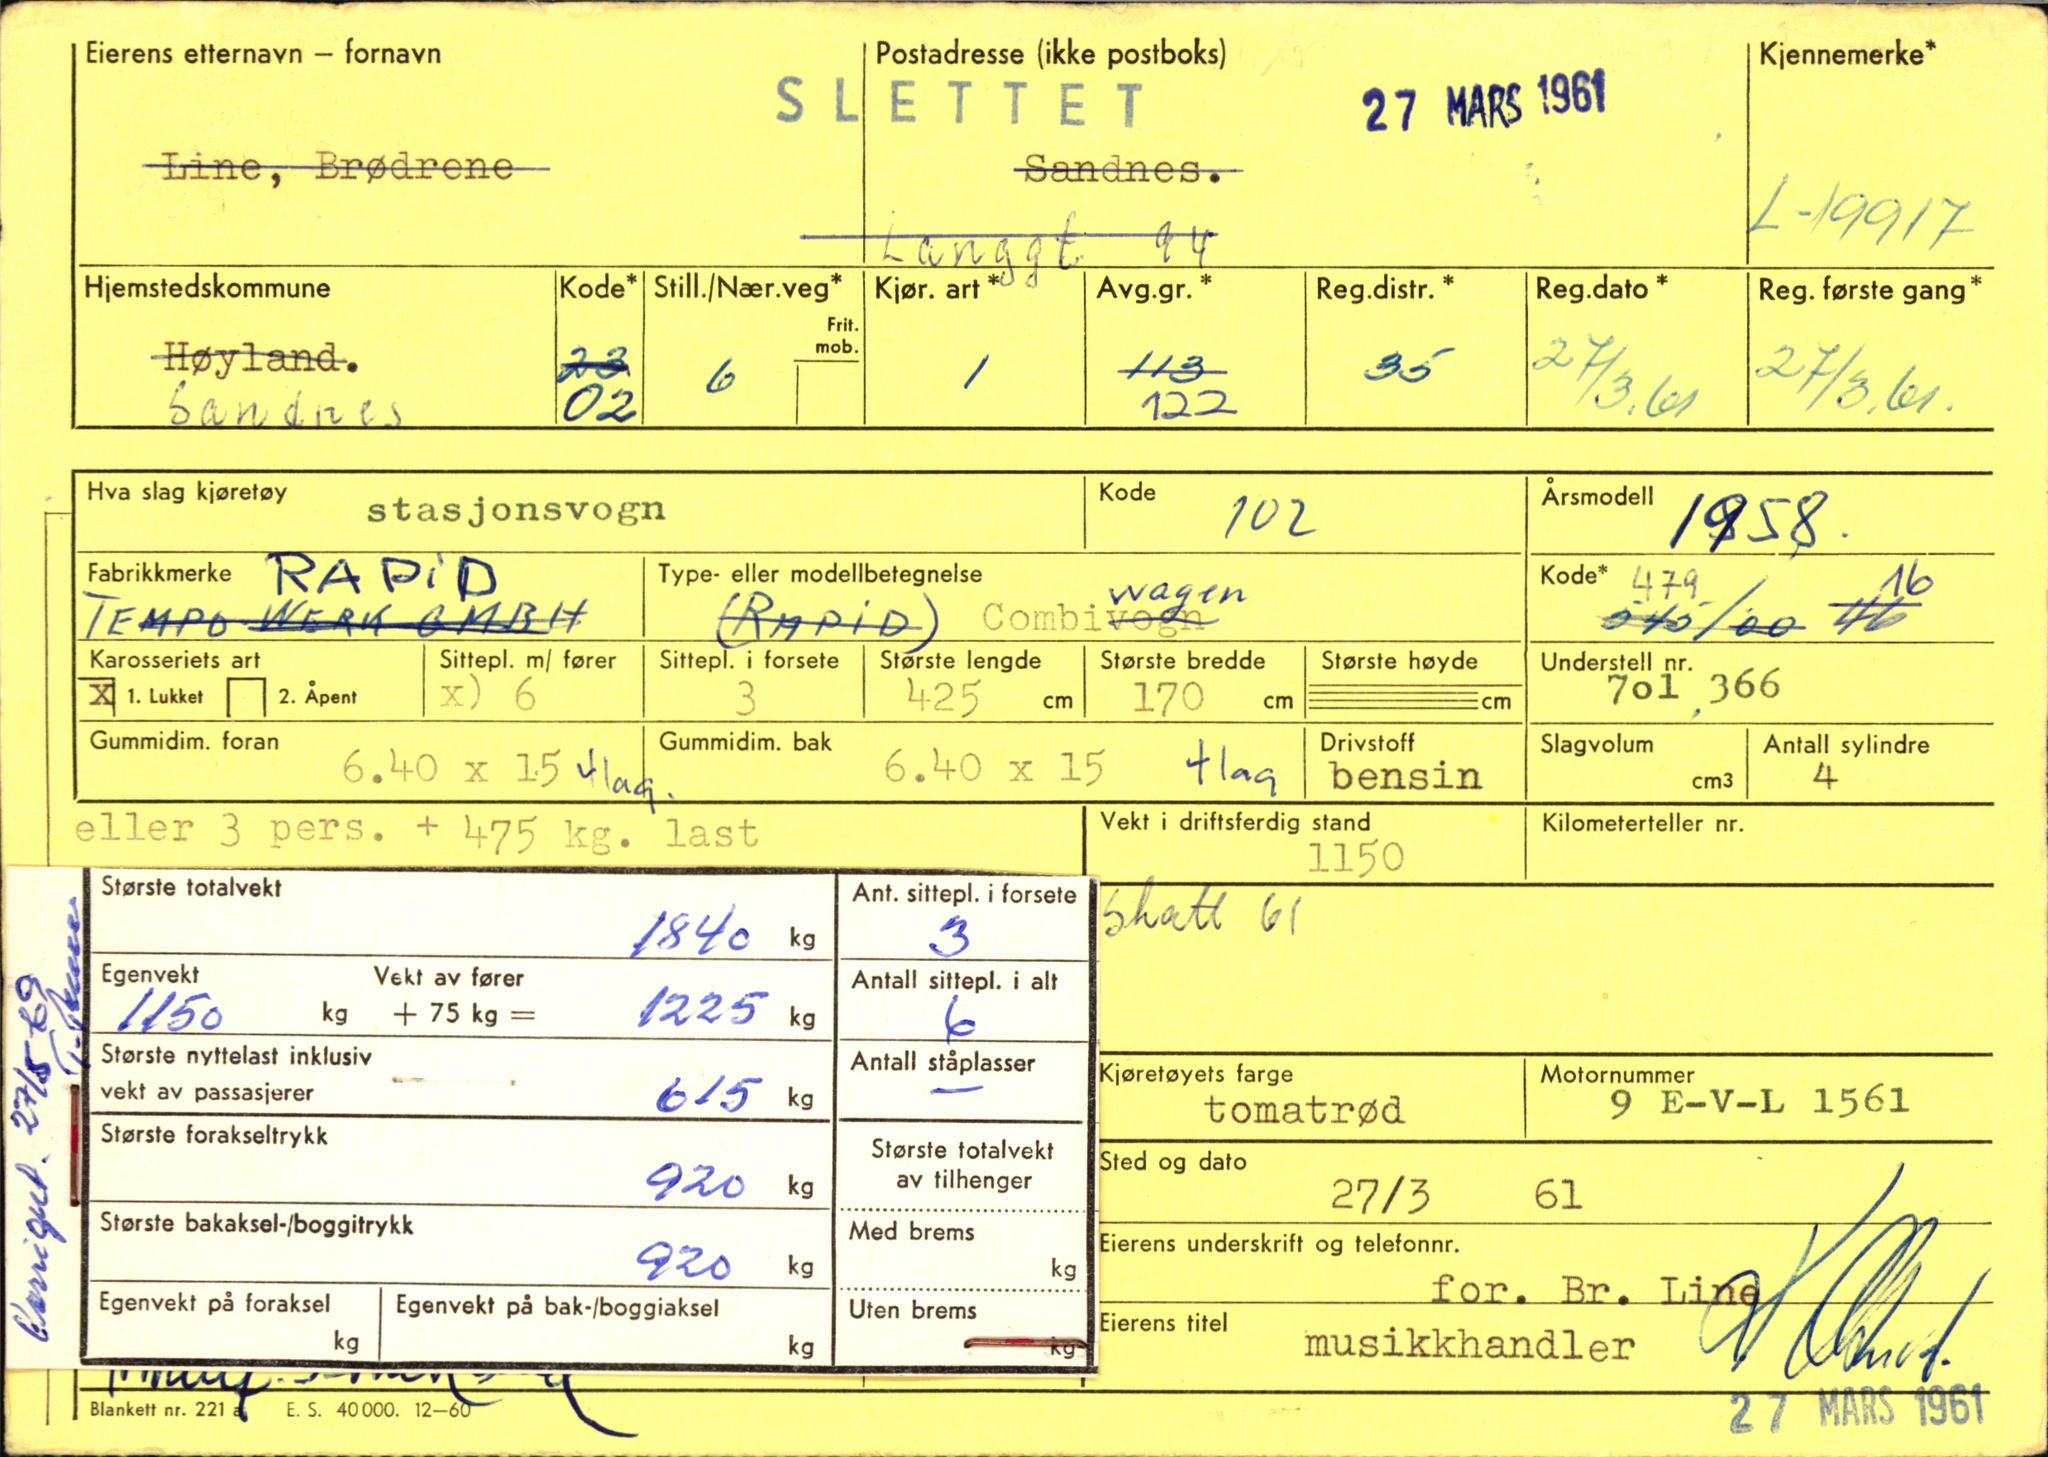 Eierens etternavn – fornavn
Postadresse (ikke postboks)
Kjennemerke*
SLETTET
27 MARS 1961
Line, Brødrene
Sandnes.
Langgt 94
L-19917
Hjemstedskommune
Kode*
Still./Nær.veg*
Frit. mob.
Kjør. art*
Avg.gr.*
Reg.distr.*
Reg.dato*
Reg. første gang*
Høyland.
23
6
1
113
35
27/3.61
27/3.61.
Sandnes
02
122
Hva slag kjøretøy
stasjonsvogn
Kode
102
Årsmodell
1958.
Fabrikkmerke
RAPiD
TEMPO WERK GMBH
Type- eller modellbetegnelse
(RAPiD) Combivogn
wagen
Kode*
479
16
Karosseriets art
X 1. Lukket
2. Åpent
Sittepl. m/ fører
x) 6
Sittepl. i forsete
3
Største lengde
425 cm
Største bredde
170 cm
Største høyde
cm
Understell nr.
7o1 366
Gummidim. foran
6.40 x 15 4 lag.
Gummidim. bak
6.40 x 15 4 lag
Drivstoff
bensin
Slagvolum
cm3
Antall sylindre
4
eller 3 pers. + 475 kg. last
Vekt i driftsferdig stand
1150
Kilometerteller nr.
Skatt 61
Største totalvekt
1840 kg
Ant. sittepl. i forsete
3
Egenvekt
1150 kg
Vekt av fører
+ 75 kg = 1225 kg
Antall sittepl. i alt
6
Største nyttelast inklusiv
vekt av passasjerer
615 kg
Antall ståplasser
–
Største forakseltrykk
920 kg
Største totalvekt
av tilhenger
Største bakaksel-/boggitrykk
920 kg
Med brems
kg
Egenvekt på foraksel
kg
Egenvekt på bak-/boggiaksel
kg
Uten brems
kg
Korrigert. 27/5-69
Kjøretøyets farge
tomatrød
Motornummer
9 E-V-L 1561
Sted og dato
27/3 61
Eierens underskrift og telefonnr.
for. Br. Line
Eierens titel
musikkhandler
27 MARS 1961
Blankett nr. 221 a. E. S. 40000. 12–60